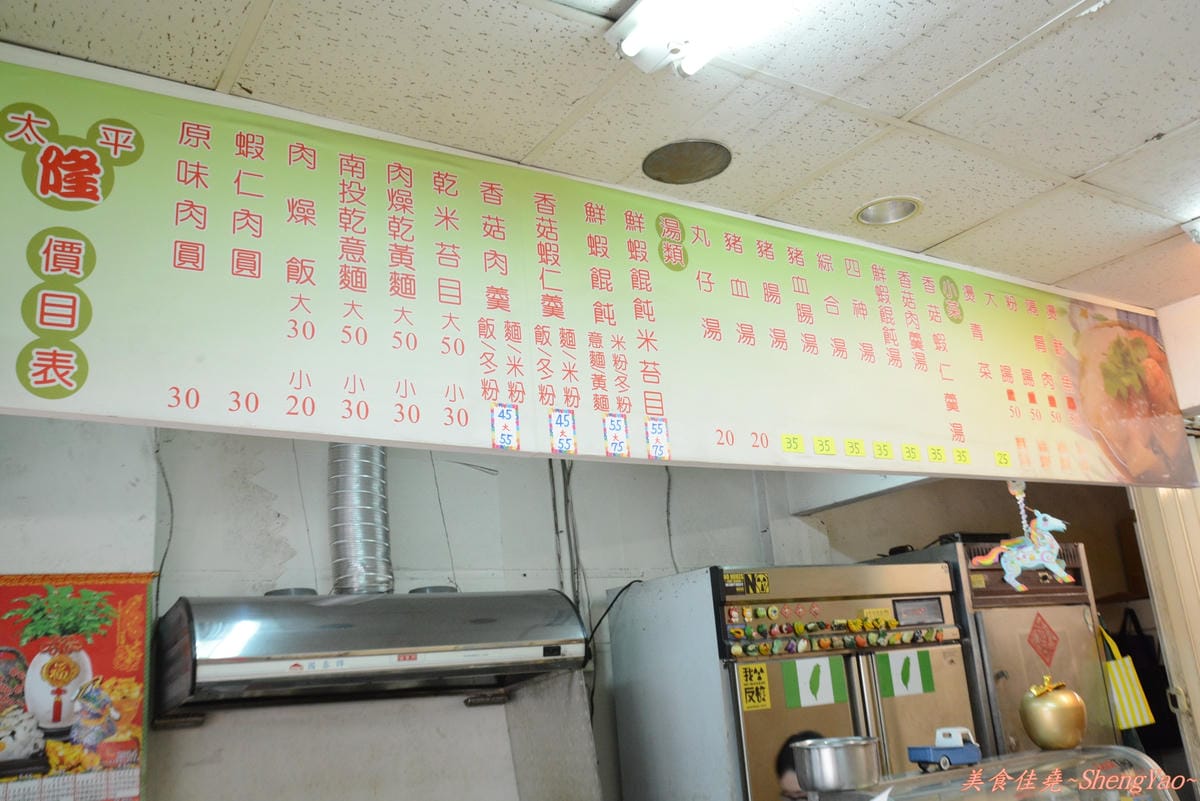 太平
隆
價目表
原味肉圓 30
蝦仁肉圓 30
肉燥飯 大30 小20
南投乾意麵 大50 小30
肉燥乾黃麵 大50 小30
乾米苔目 大50 小30
香菇肉羹 麵/米粉 飯/冬粉 45 大55
香菇蝦仁羹 麵/米粉 飯/冬粉 45 大55
鮮蝦餛飩 米粉冬粉 意麵黃麵 55 大75
鮮蝦餛飩米苔目 55 大75
湯類
丸仔湯 20
豬血湯 20
豬腸湯 35
豬血腸湯 35
綜合湯 35
四神湯 35
鮮蝦餛飩湯 35
香菇肉羹湯 35
香菇蝦仁羹湯 35
小菜
燙大青菜 25
粉腸 50
50
肉 50
我是人
反核
NO
福
美食佳堯~ShengYao~